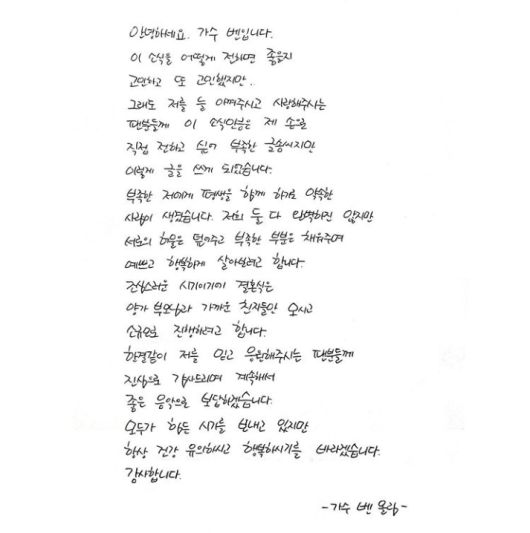 안녕하세요. 가수 벤입니다.
이 소식을 어떻게 전하면 좋을지
고민하고 또 고민했지만..
그래도 저를 늘 아껴주시고 사랑해주시는
팬분들께 이 소식만큼은 제 손으로
직접 전하고 싶어 부족한 글솜씨지만
이렇게 글을 쓰게 되었습니다.
부족한 저에게 평생을 함께 하기로 약속한
사람이 생겼습니다. 저희 둘 다 완벽하진 않지만
서로의 허물은 덮어주고 부족한 부분은 채워주며
예쁘고 행복하게 살아보려고 합니다.
조심스러운 시기이기에 결혼식은
양가 부모님과 가까운 친지들만 모시고
소규모로 진행하려고 합니다.
한결같이 저를 믿고 응원해주시는 팬분들께
진심으로 감사드리며 계속해서
좋은 음악으로 보답하겠습니다.
모두가 힘든 시기를 보내고 있지만
항상 건강 유의하시고 행복하시기를 바라겠습니다.
감사합니다.
- 가수 벤 올림 -